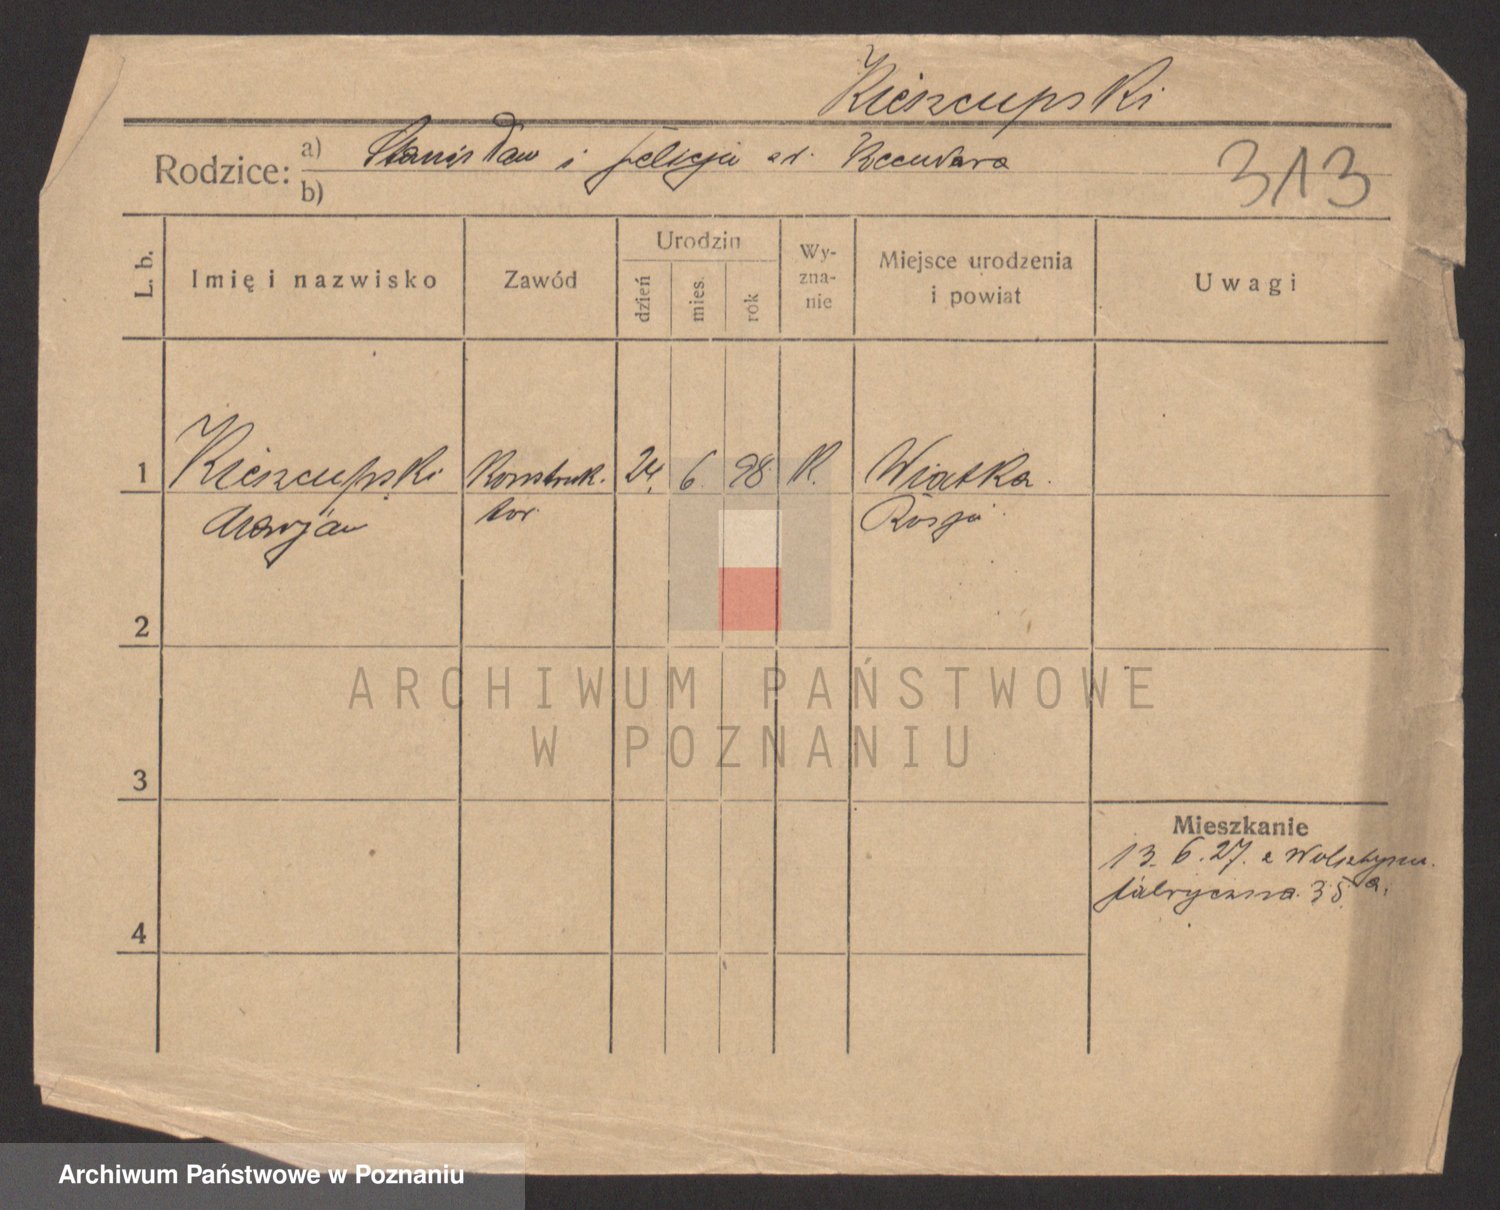 Kieszcupski
Rodzice: a) Stanisław i Felicja
b)
313
L. b.
Imię i nazwisko
Zawód
Urodzin
dzień
mies.
rok
Wy-
zna-
nie
Miejsce urodzenia
i powiat
Uwagi
1 Kieszcupski Konstruk. 24. 6. 98. K. Wiatka.
Marjan tor. Rosja
2
ARCHIWUM PAŃSTWOWE
W POZNANIU
3
Mieszkanie
13. 6. 27. z Wolsztyna.
fabryczna 35 a.
4
Archiwum Państwowe w Poznaniu